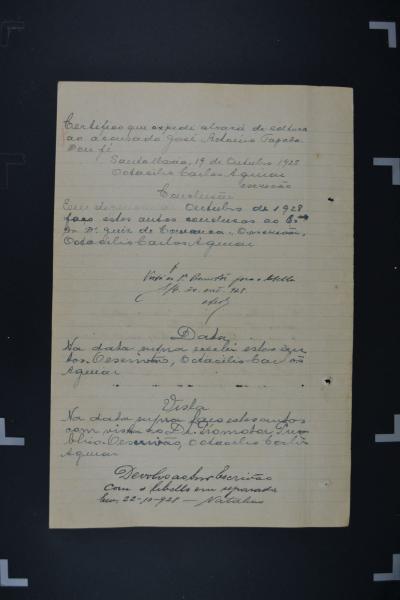 Certifico que expedi alvará de soltura
ao accusado José Antonio
Dou fé
Santa Maria, 19 de Outubro 1928
Octacilio Carlos Aguiar
Escrivão
Conclusão
Em Outubro de 1928
faço estes autos conclusos ao
Dr. Juiz de Comarca. O escrivão,
Octacilio Carlos Aguiar
Vista ao Dr. Promotor para o libello
S.M. 20 out. 928.
Data
Na data supra recebi estes au
tos. O escrivão, Octacilio Carlos
Aguiar
Vista
Na data supra faço estes autos
com vista ao Dr. Promotor Pu
blico. O escrivão, Octacilio Carlos
Aguiar
Devolvo ao Snr. Escrivão
com o libello em separado
Em, 22-10-928 —